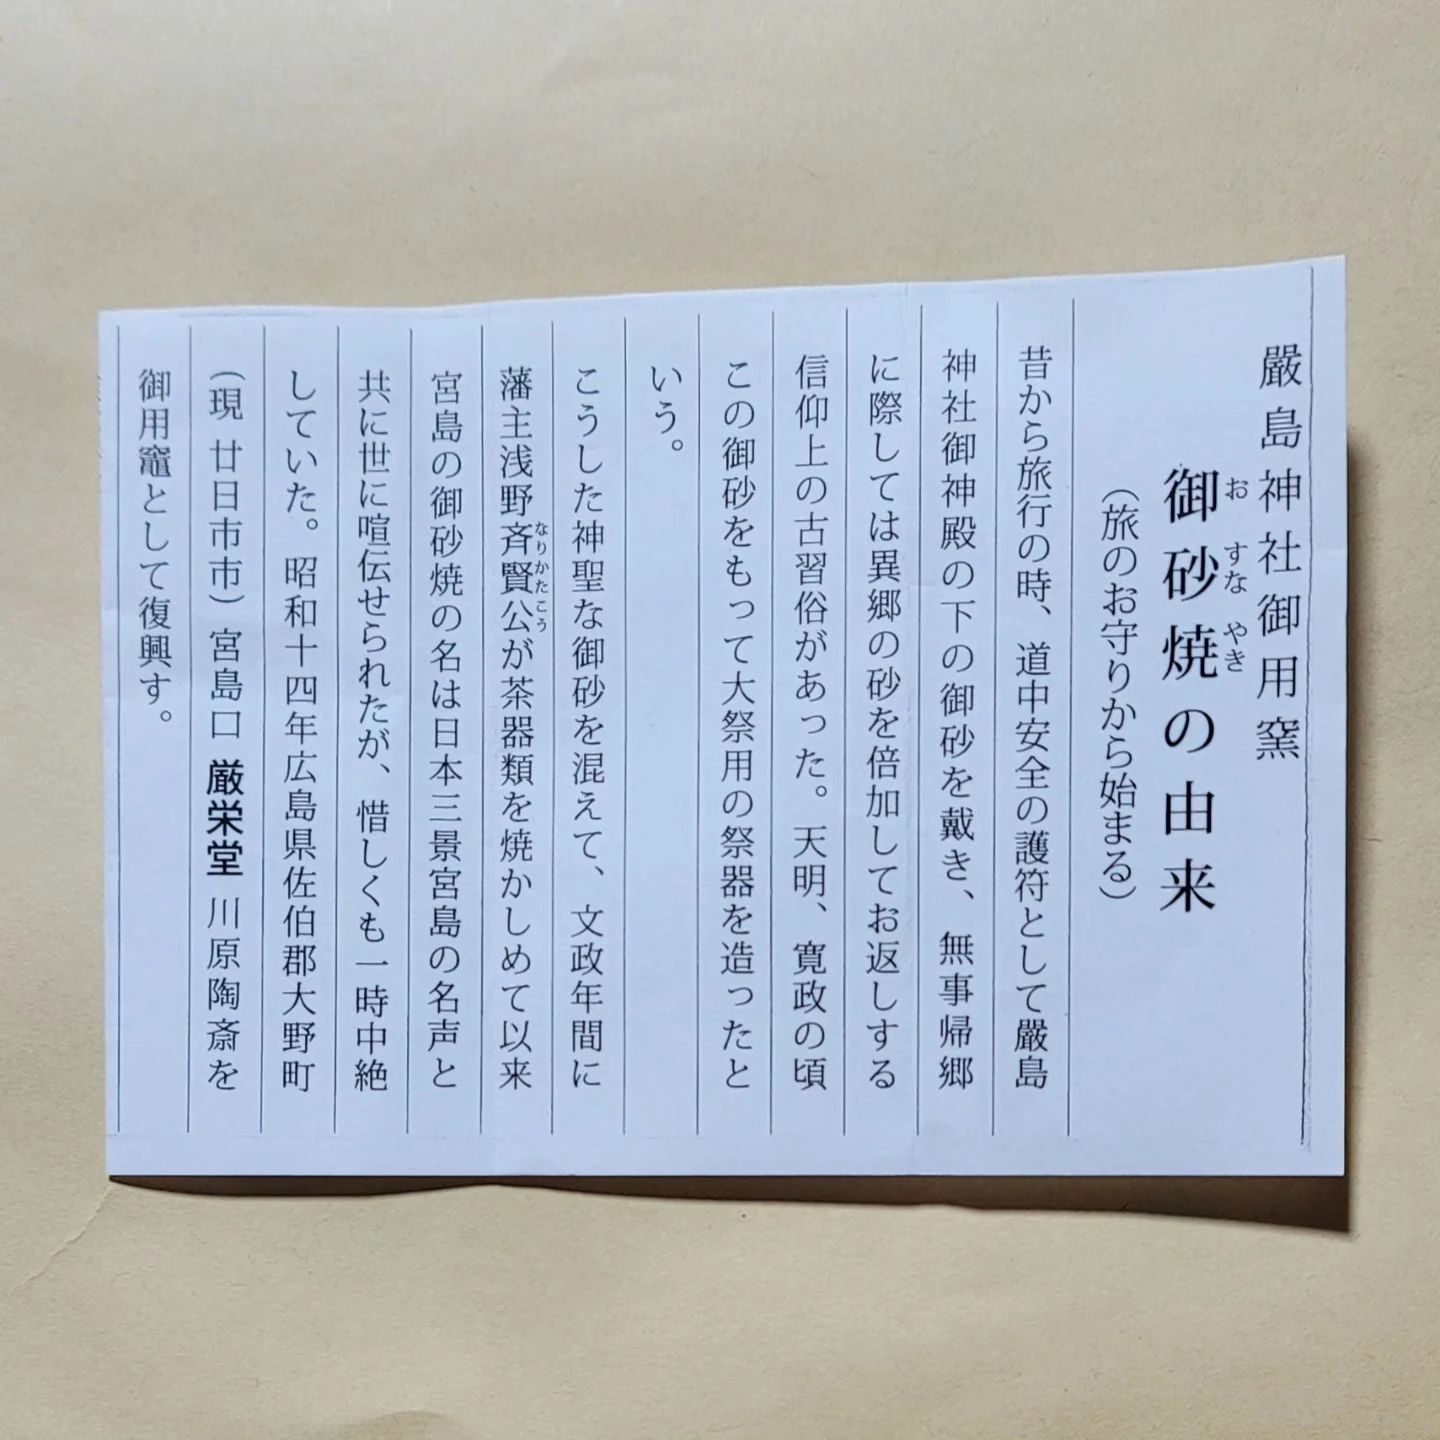 嚴島神社御用窯
御砂焼の由来
お すな やき
(旅のお守りから始まる)
昔から旅行の時、道中安全の護符として嚴島
神社御神殿の下の御砂を戴き、無事帰郷
に際しては異郷の砂を倍加してお返しする
信仰上の古習俗があった。天明、寛政の頃
この御砂をもって大祭用の祭器を造ったと
いう。
こうした神聖な御砂を混えて、文政年間に
藩主浅野斉賢公が茶器類を焼かしめて以来
なりかたこう
宮島の御砂焼の名は日本三景宮島の名声と
共に世に喧伝せられたが、惜しくも一時中絶
していた。昭和十四年広島県佐伯郡大野町
(現 廿日市市)宮島口 厳栄堂 川原陶斎を
御用竈として復興す。